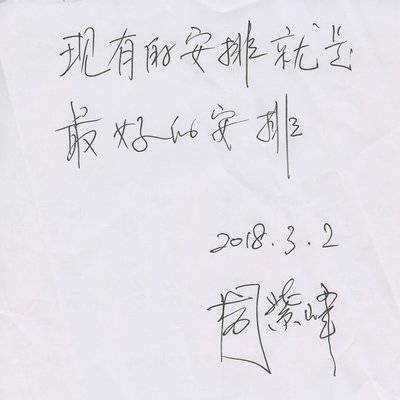 现有的安排就是
最好的安排
2018.3.2
周紫峰